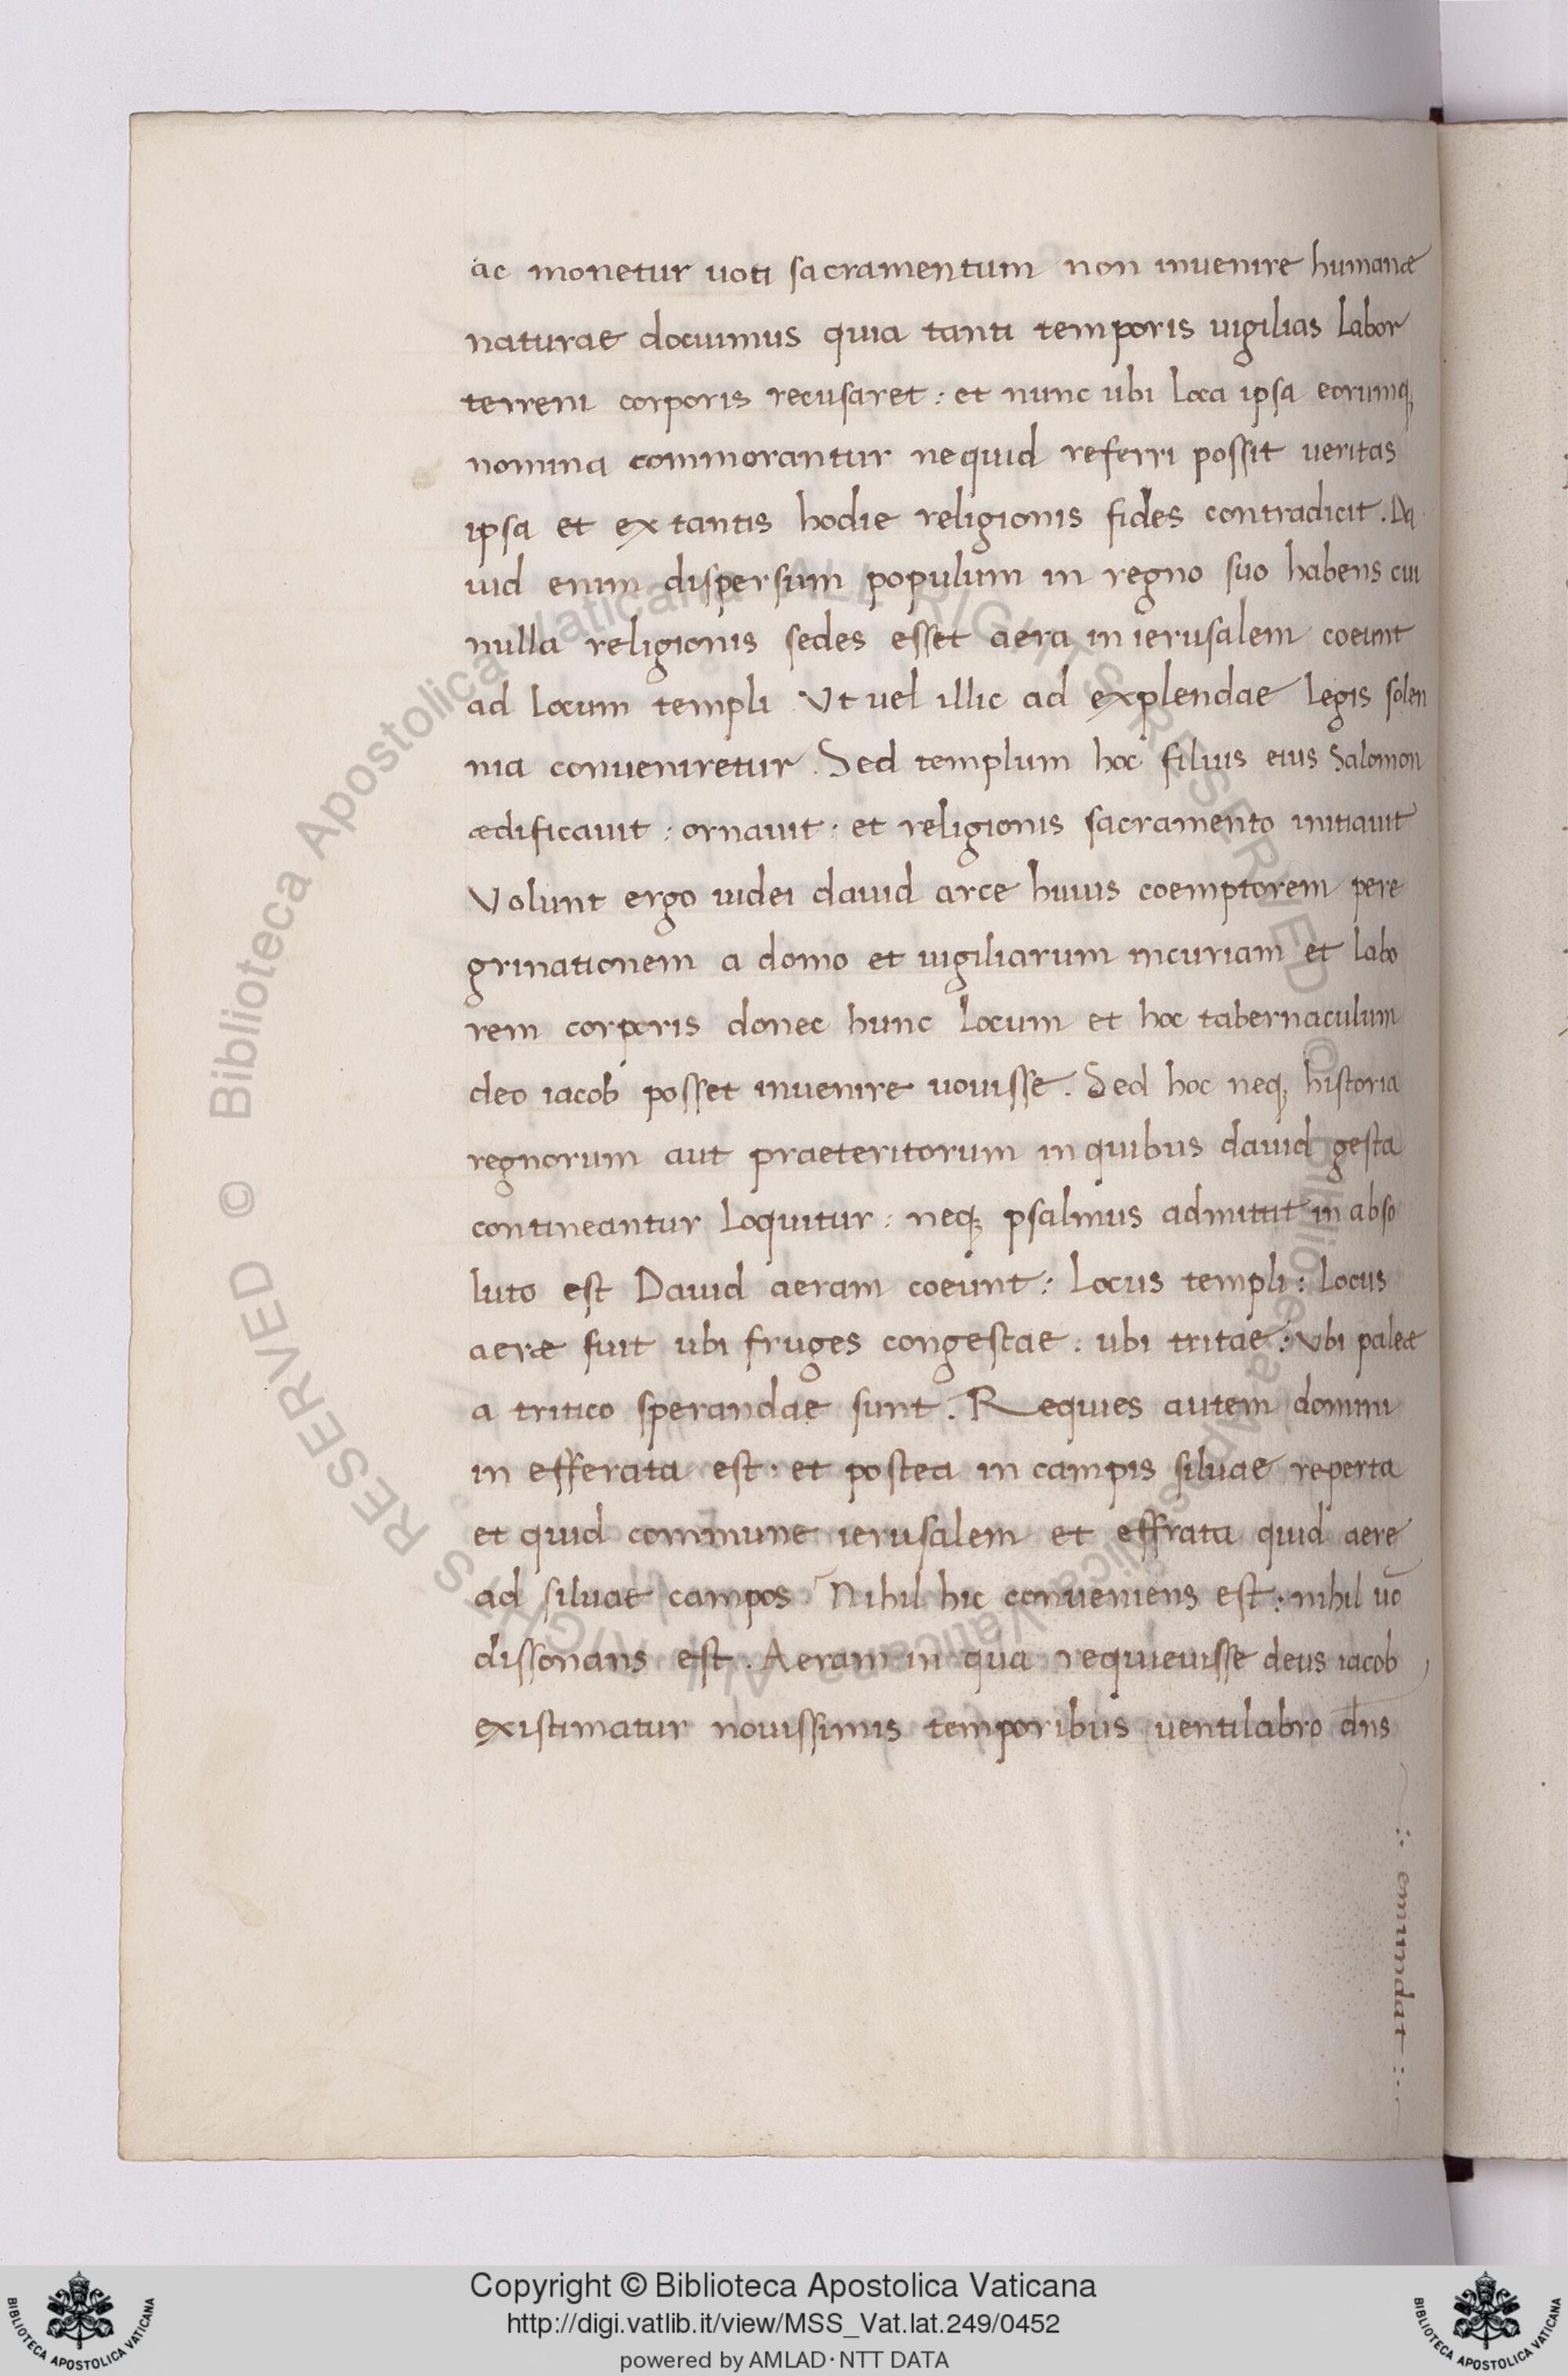 ac monetur uoti sacramentum non inuenire humanæ
naturae docuimus quia tanti temporis uigilias labor
terreni corporis recusaret : et nunc ubi loca ipsa eorumq;
nomina commorantur nequid referri possit ueritas
ipsa et extantis hodie religionis fides contradicit. Da
uid enim dispersum populum in regno suo habens cui
nulla religionis sedes esset aera in ierusalem coeunt
ad locum templi Vt uel illic ad explendae legis solen
nia conueniretur. Sed templum hoc filius eius Salomon
ædificauit : ornauit : et religionis sacramento initiauit
Volunt ergo iudei dauid arce huius coemptorem pere
grinationem a domo et uigiliarum incuriam et labo
rem corporis donec hunc locum et hoc tabernaculum
deo iacob posset inuenire uouisse. Sed hoc neq; historia
regnorum aut praeteritorum in quibus dauid gesta
contineantur loquitur : neq; psalmus admittit in abso
luto est Dauid aeram coeunt : locus templi : locus
aeræ fuit ubi fruges congestae : ubi tritae : Vbi paleæ
a tritico sperandae sunt. Requies autem domini
in efferata est : et postea in campis siluae reperta
et quid commune ierusalem et effrata quid aere
ad siluae campos. Nihil hic conueniens est : nihil uō
dissonans est. Aeram in qua requieuisse deus iacob
existimatur nouissimis temporibus uentilabro dn̄s
:· emundat :·
© Biblioteca Apostolica Vaticana ALL RIGHTS RESERVED © Biblioteca Apostolica Vaticana ALL RIGHTS RESERVED
Copyright © Biblioteca Apostolica Vaticana
http://digi.vatlib.it/view/MSS_Vat.lat.249/0452
powered by AMLAD·NTT DATA
BIBLIOTECA APOSTOLICA VATICANA
BIBLIOTECA APOSTOLICA VATICANA